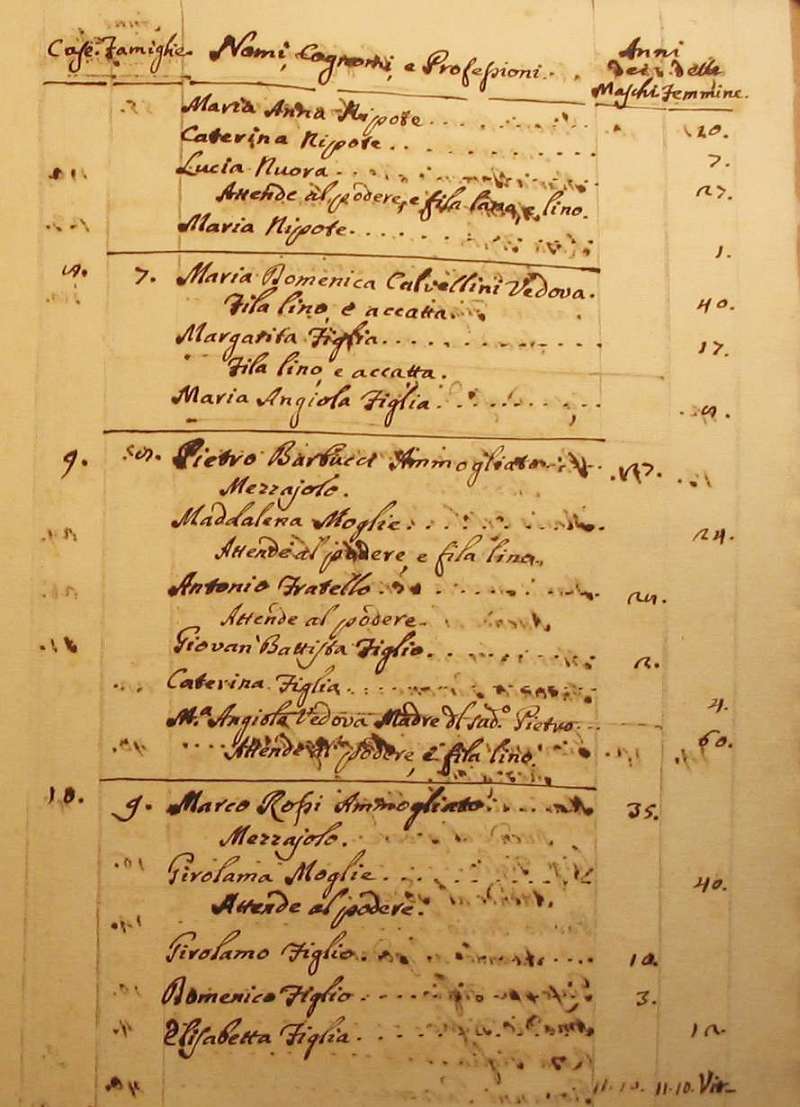 Case. Famiglie. Nomi, Cognomi, e Professioni. Anni
dei delle
Maschi Femmine.
Maria Anna Nipote 20.
Caterina Nipote 7.
Lucia Nuora 27.
Attende al podere, e fila lana, e lino.
Maria Nipote 1.
7. Maria Domenica Calvellini Vedova. 40.
Fila lino, e accatta.
Margarita Figlia 17.
Fila lino, e accatta.
Maria Angiola Figlia
9. Pietro Barbucci Ammogliato
Mezzajolo.
Maddalena Moglie 24.
Attende al podere, e fila lino.
Antonio Fratello
Attende al podere.
Giovan' Battista Figlio. 2.
Caterina Figlia 4.
M.ª Angiola Vedova Madre dl sad.º Pietro 60.
Attende al podere, e fila lino.
10. 9. Marco Rossi Ammogliato 35.
Mezzajolo.
Girolama Moglie 40.
Attende al podere.
Girolamo Figlio 10.
Domenico Figlio 3.
Elisabetta Figlia 12.